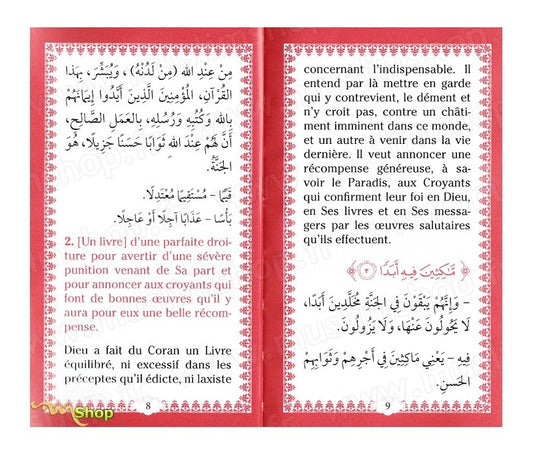 مِنْ عِنْدِ اللهِ (مِنْ لَدُنْهُ) ، وَيُبَشِّرَ، بِهَذَا
الْقُرْآنِ، الْمُؤْمِنِينَ الَّذِينَ أَيَّدُوا إِيمَانَهُمْ
بِاللهِ وَكُتُبِهِ وَرُسُلِهِ، بِالْعَمَلِ الصَّالِحِ،
أَنَّ لَهُمْ عِنْدَ اللهِ ثَوَابًا حَسَنًا جَزِيلًا، هُوَ
الْجَنَّةُ.
قَيِّمًا – مُسْتَقِيمًا مُعْتَدِلًا.
بَأْسًا – عَذَابًا آجِلًا أَوْ عَاجِلًا.
2. [Un livre] d'une parfaite droi-
ture pour avertir d'une sévère
punition venant de Sa part et
pour annoncer aux croyants qui
font de bonnes œuvres qu'il y
aura pour eux une belle récom-
pense.
Dieu a fait du Coran un Livre
équilibré, ni excessif dans les
préceptes qu'il édicte, ni laxiste
8
Shop
concernant l'indispensable. Il
entend par là mettre en garde
qui y contrevient, le dément et
n'y croit pas, contre un châti-
ment imminent dans ce monde,
et un autre à venir dans la vie
dernière. Il veut annoncer une
récompense généreuse, à sa-
voir le Paradis, aux Croyants
qui confirment leur foi en Dieu,
en Ses livres et en Ses messa-
gers par les œuvres salutaires
qu'ils effectuent.
﴿ مَّٰكِثِينَ فِيهِ أَبَدًا ٣ ﴾
– وَإِنَّهُمْ يَبْقَوْنَ فِي الْجَنَّةِ مُخَلَّدِينَ أَبَدًا،
لَا يَحُولُونَ عَنْهَا، وَلَا يَزُولُونَ.
فِيهِ – يَعْنِي مَاكِثِينَ فِي أَجْرِهِمْ وَثَوَابِهِمْ
الْحَسَنِ.
9